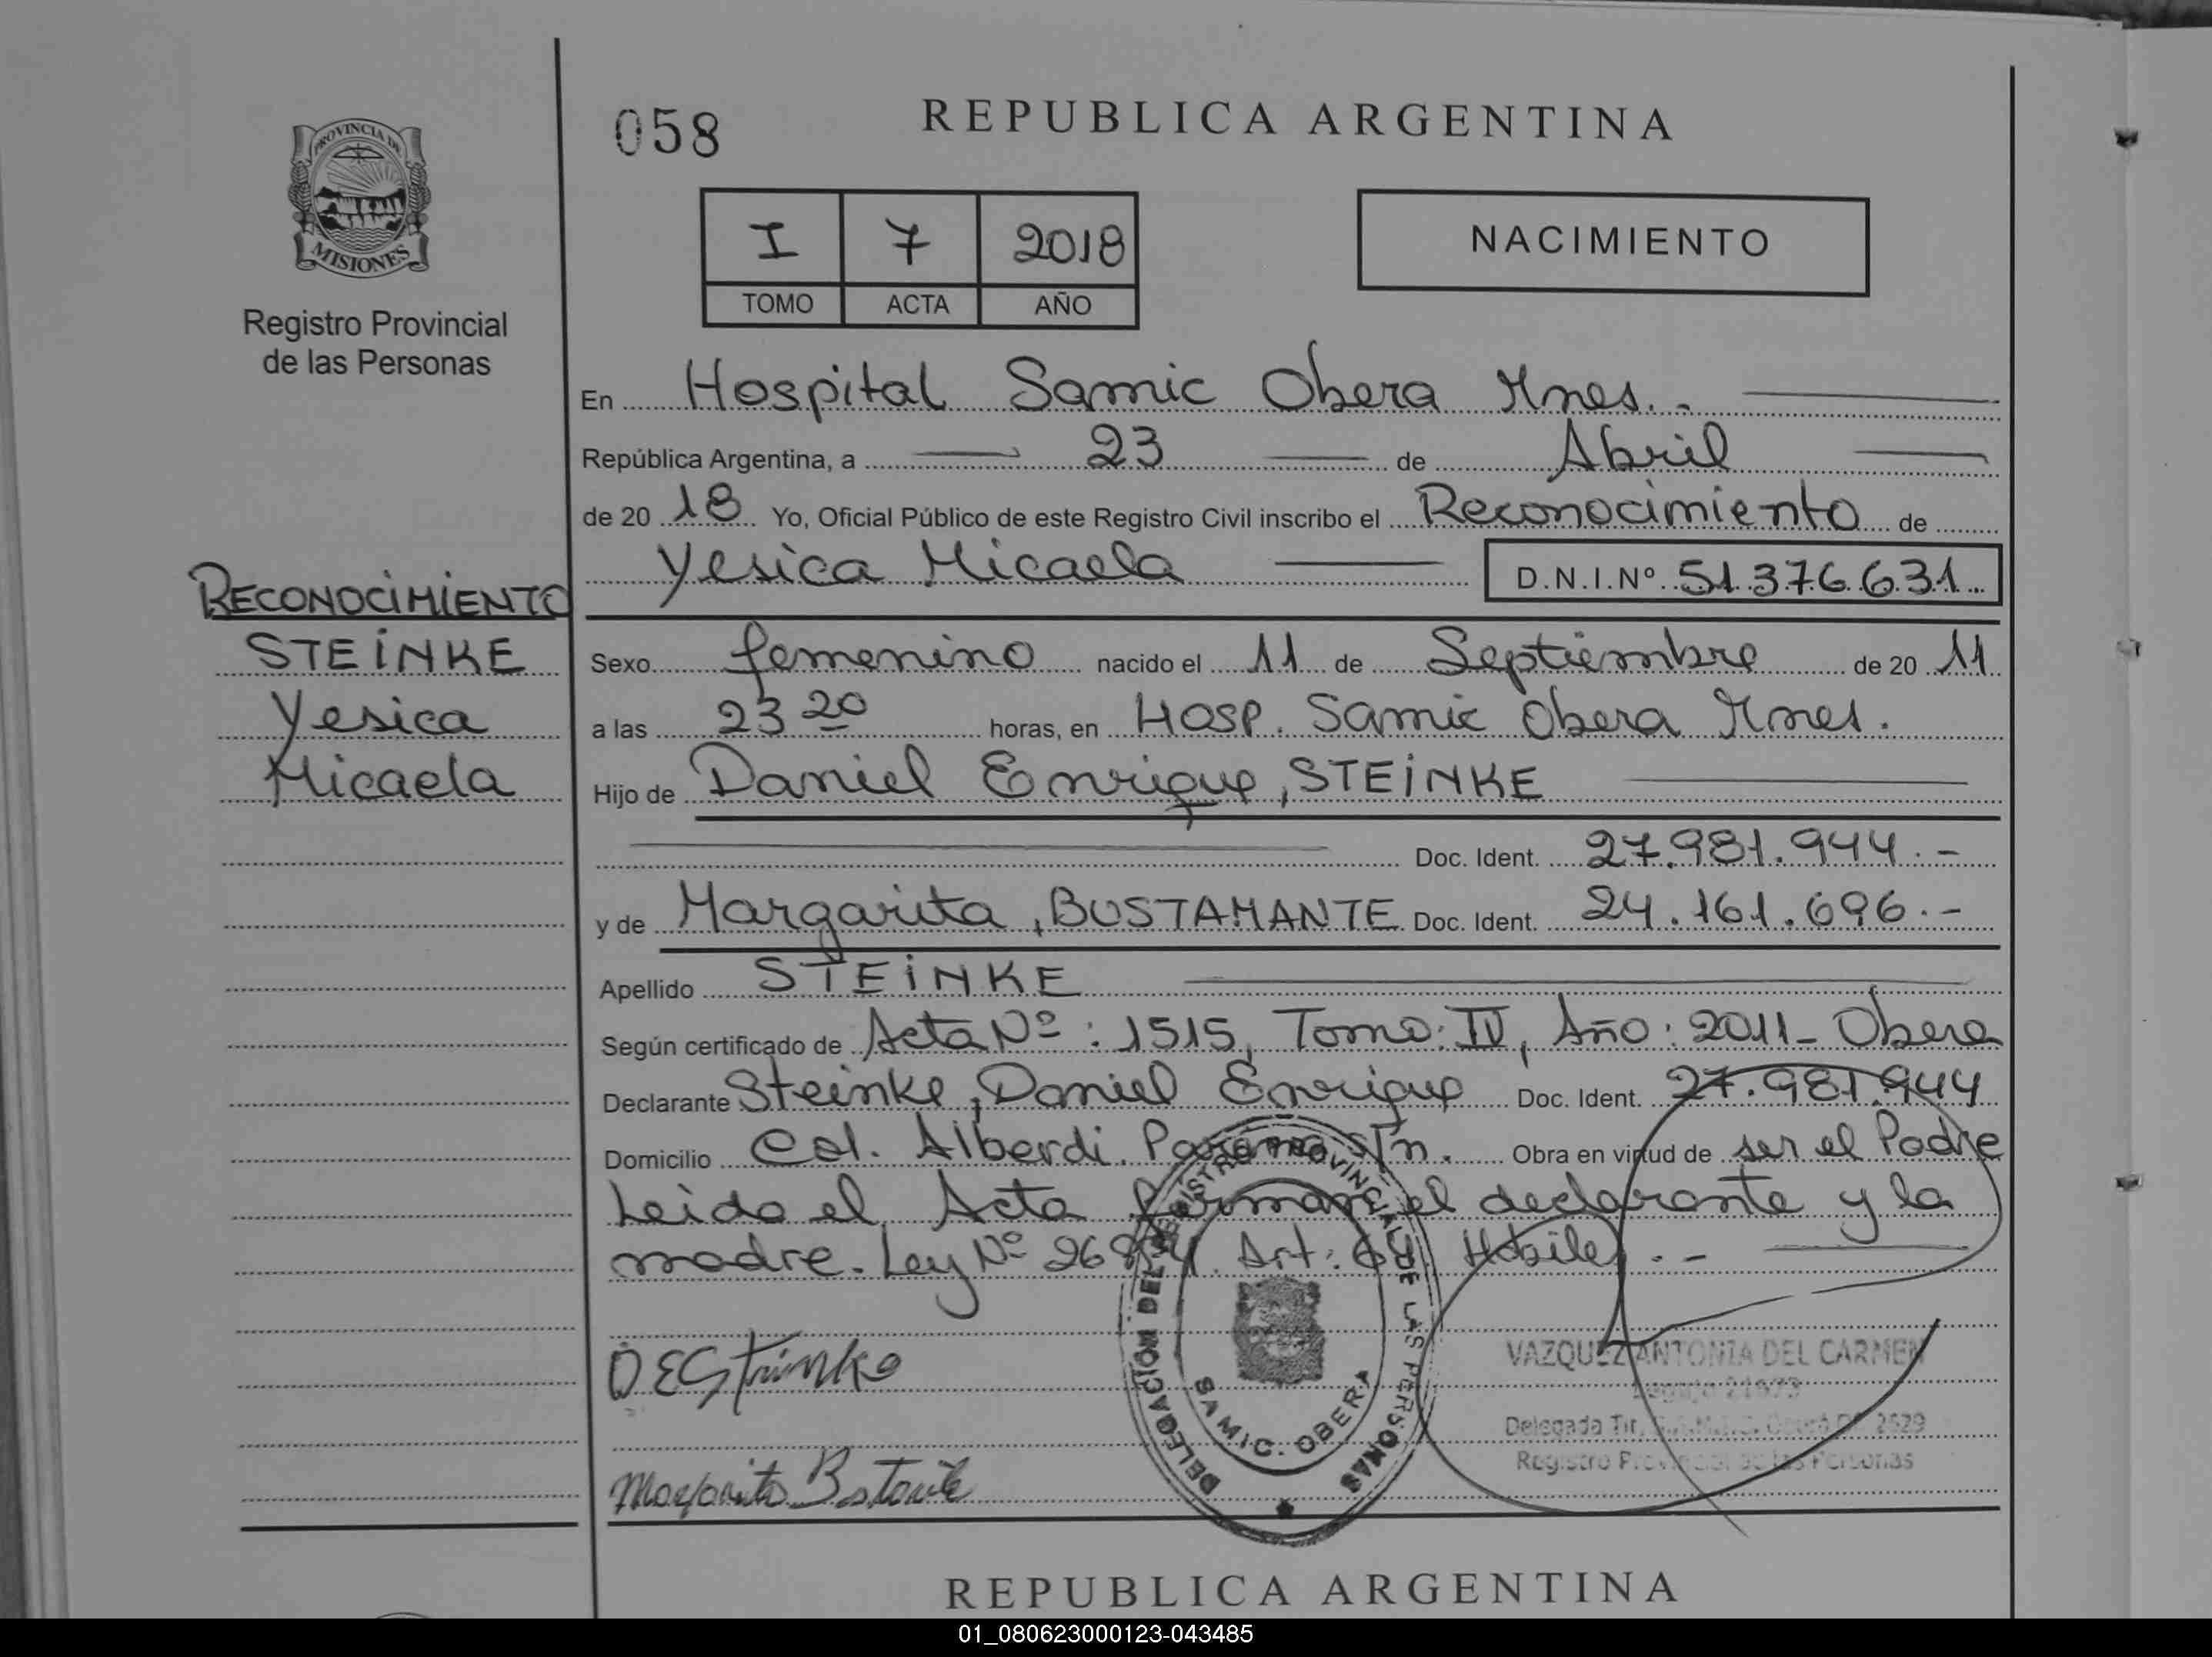 PROVINCIA DE
MISIONES
Registro Provincial
de las Personas
RECONOCIMIENTO
STEINKE
Yesica
Micaela
058
REPUBLICA ARGENTINA
I 7 2018
TOMO ACTA AÑO
NACIMIENTO
En Hospital Samic Obera Mnes.-
República Argentina, a 23 de Abril
de 20 18 Yo, Oficial Público de este Registro Civil inscribo el Reconocimiento de
Yesica Micaela D.N.I.Nº 51.376.631
Sexo femenino nacido el 11 de Septiembre de 20 11
a las 23 20 horas, en Hosp. Samic Obera Mnes.
Hijo de Daniel Enrique, STEINKE
Doc. Ident. 27.981.944.-
y de Margarita, BUSTAMANTE Doc. Ident. 24.161.696.-
Apellido STEINKE
Según certificado de Acta Nº: 1515, Tomo: IV, Año: 2011- Obera
Declarante Steinke, Daniel Enrique Doc. Ident. 27.981.944
Domicilio Col. Alberdi. s/n. Obra en virtud de ser el Padre
Leida el Acta firman el declarante y la
madre. Ley Nº Art: Habile.-
DESteinke
DELEGACIÓN DEL REGISTRO PROVINCIAL DE LAS PERSONAS
SAMIC. OBERA
VAZQUEZ ANTONIA DEL CARMEN
Delegada Tit. 2629
Registro Provincial de las Personas
Margarita
REPUBLICA ARGENTINA
01_080623000123-043485